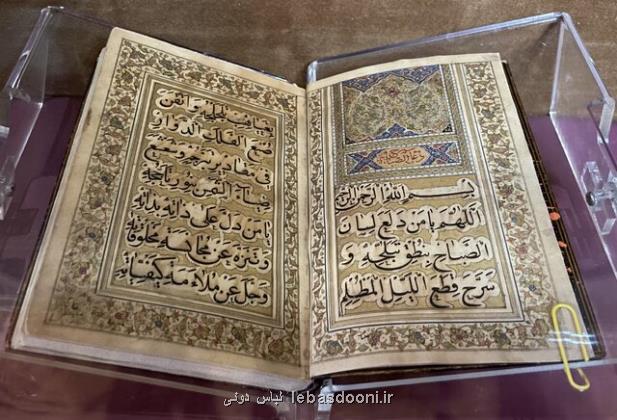 بسم الله الرحمن الرحیم
اللهم یا من دلع لسان
الصباح بنطق تبلجه و
سرح قطع اللیل المظلم
بغیاهب تلجلجه و اتقن
صنع الفلک الدوار
فی مقادیر تبرجه و شعشع
ضیآء الشمس بنور تاججه
یا من دل علی ذاته بذاته
و تنزه عن مجانسة مخلوقاته
و جل عن ملاءمة کیفیاته
لباس دونی lebasdooni.ir